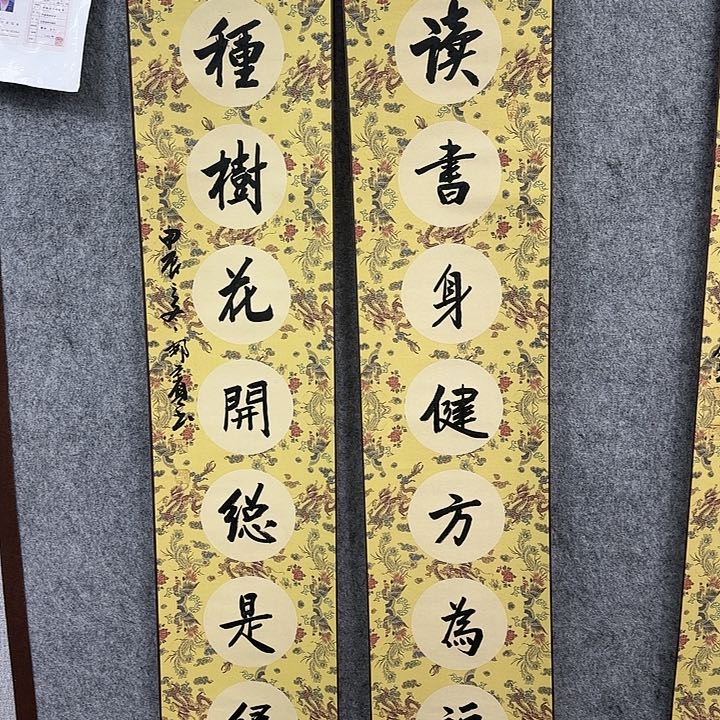 读書身健方為
種樹花開総是
甲辰之冬